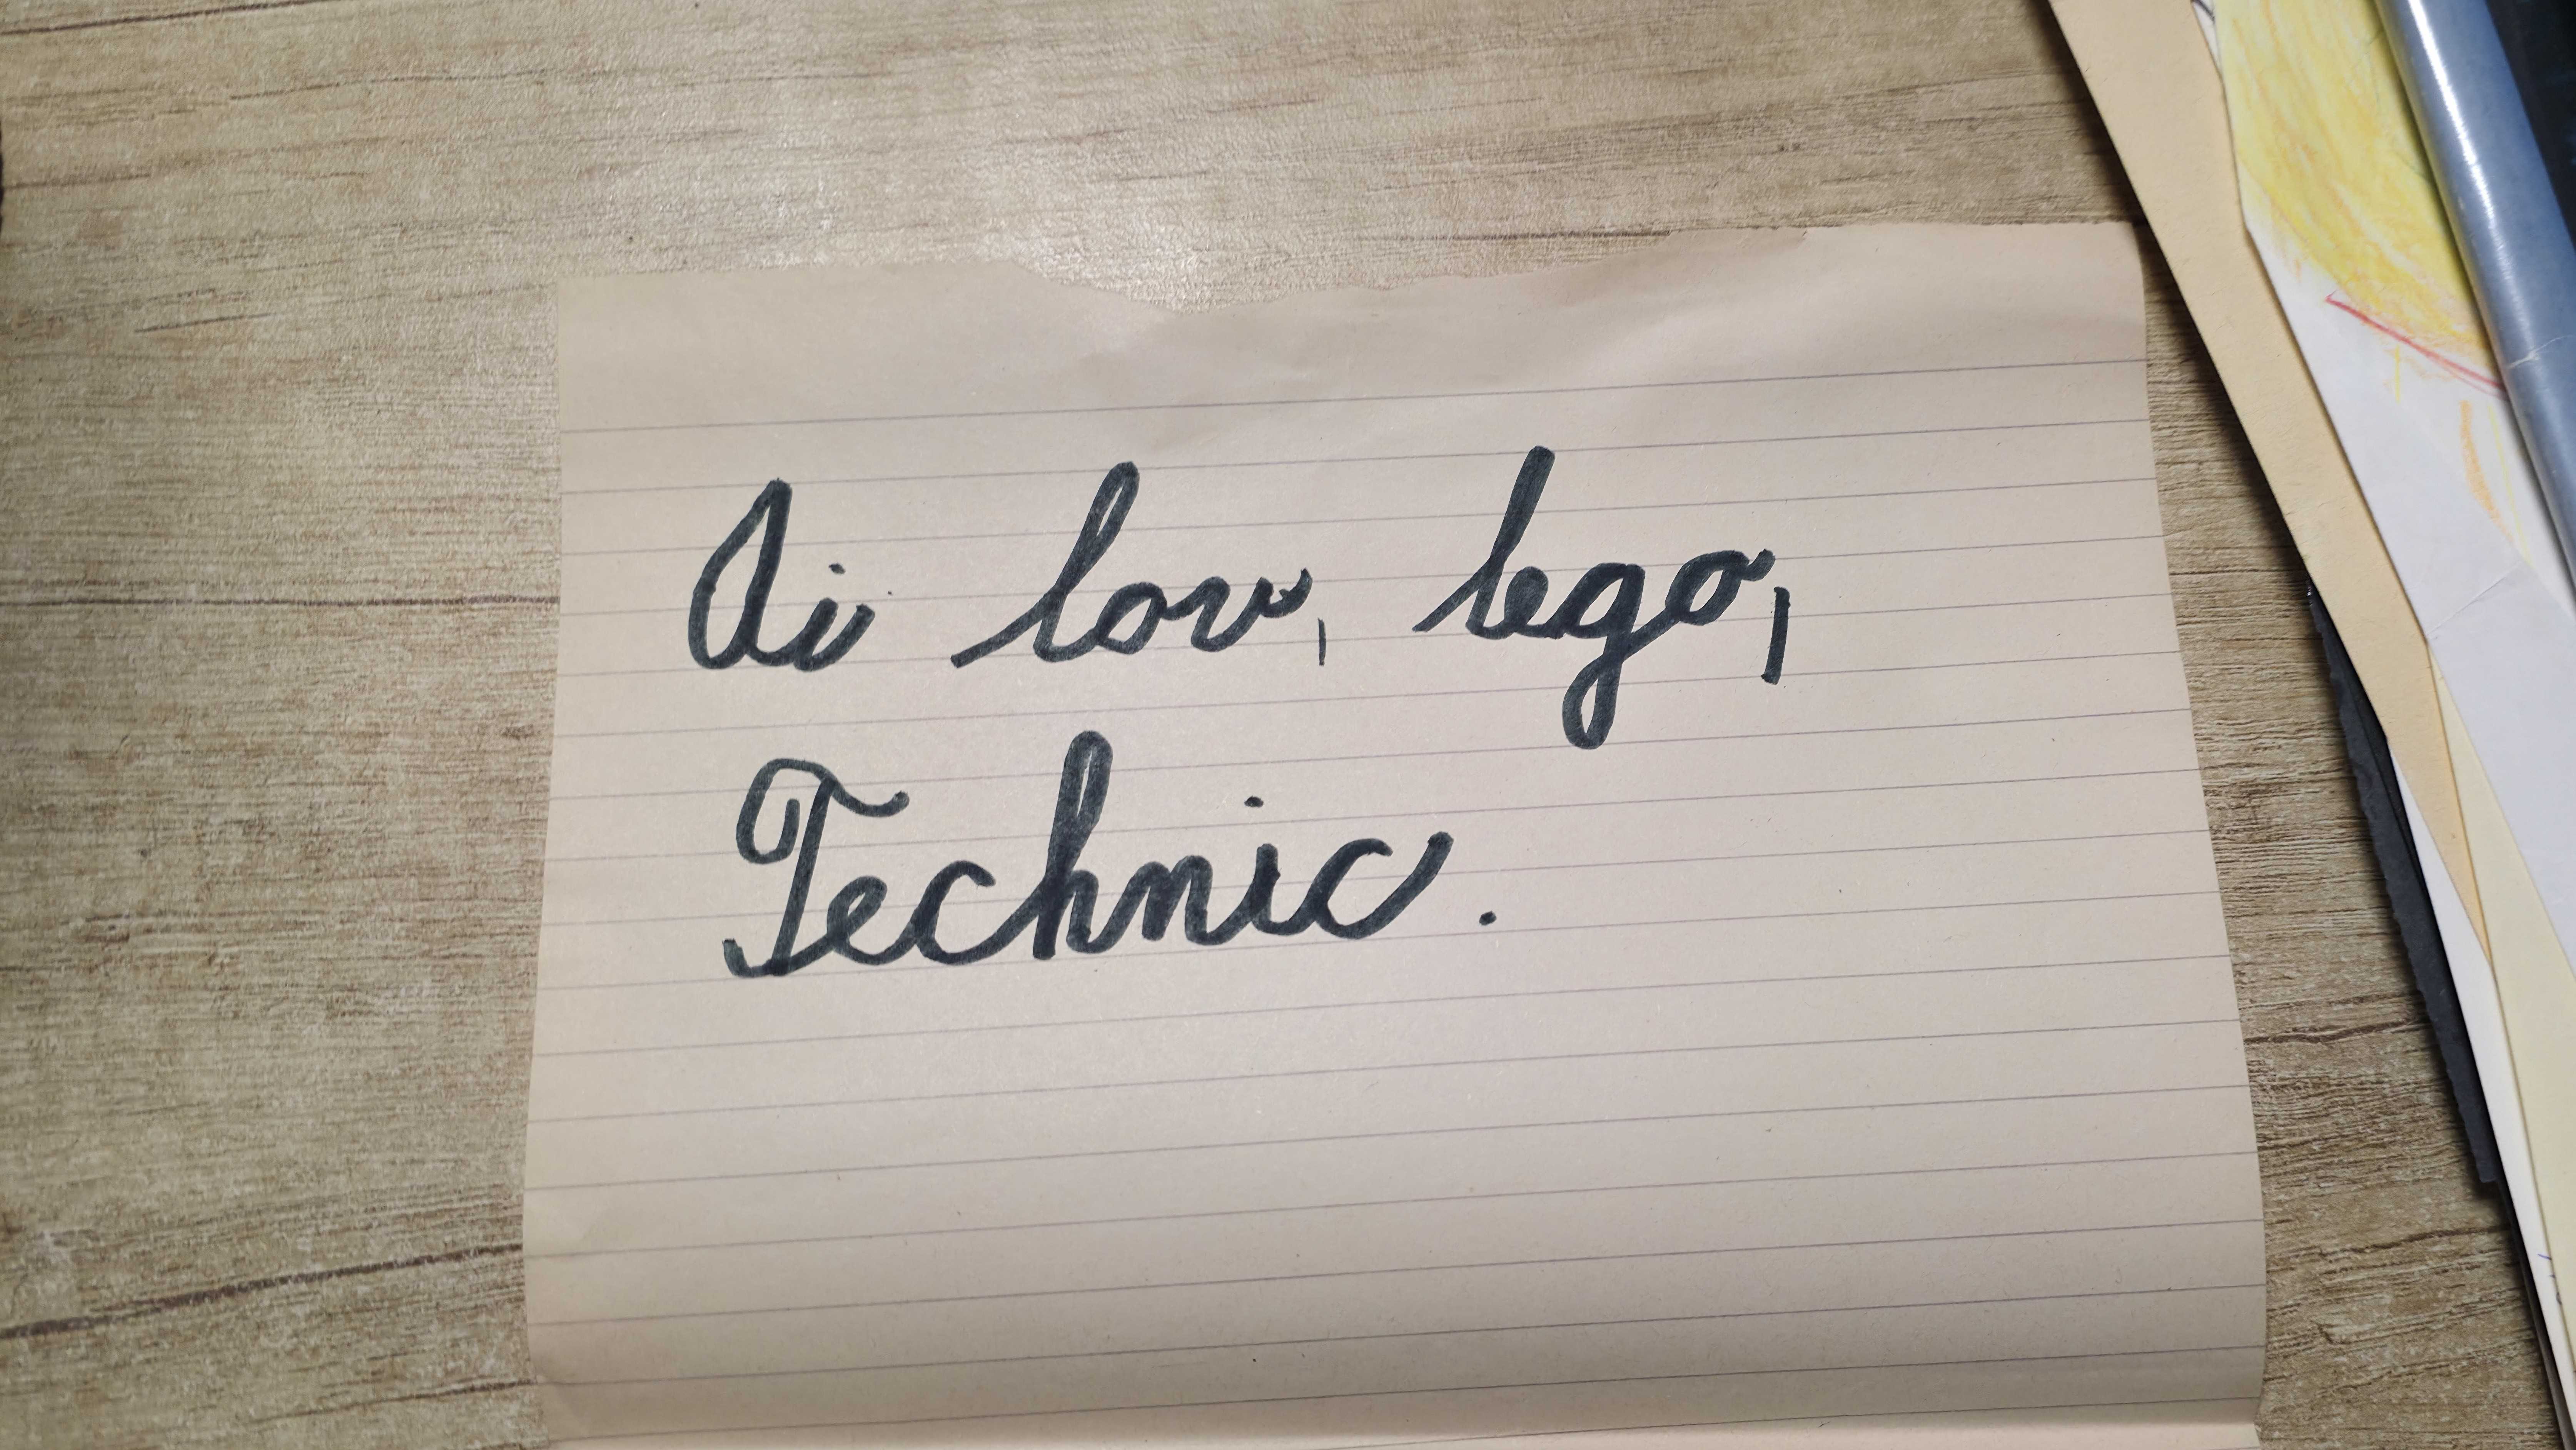 Ai lov, lego,
Technic.